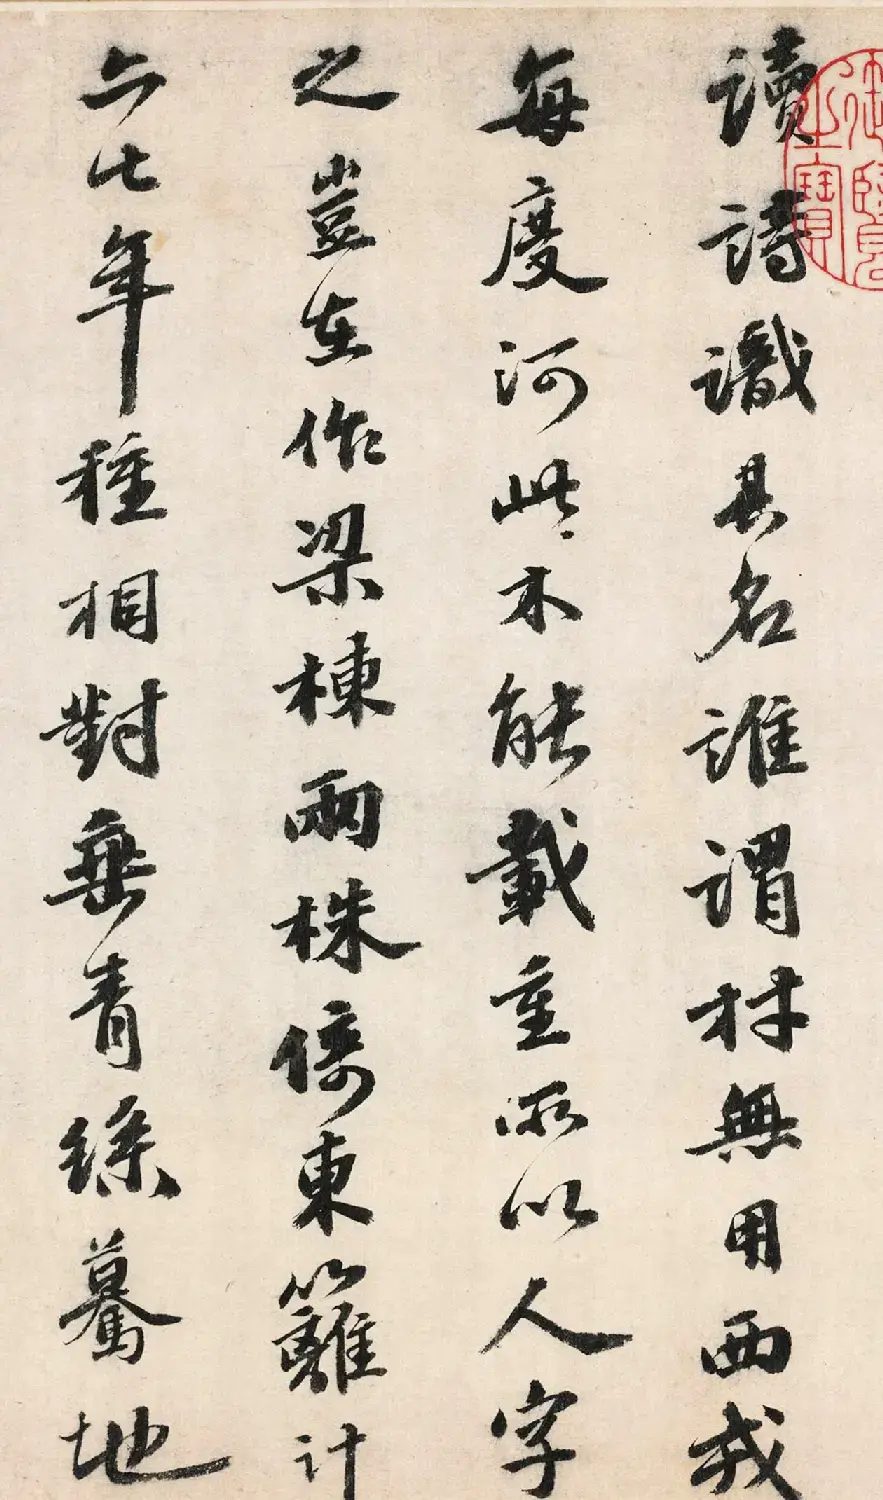 讀詩識其名誰謂材無用西戎
每度河此木能載重所以人字
之豈在作梁棟兩株倚東籬計
六七年種相對垂青絲驀地
御覽之寶